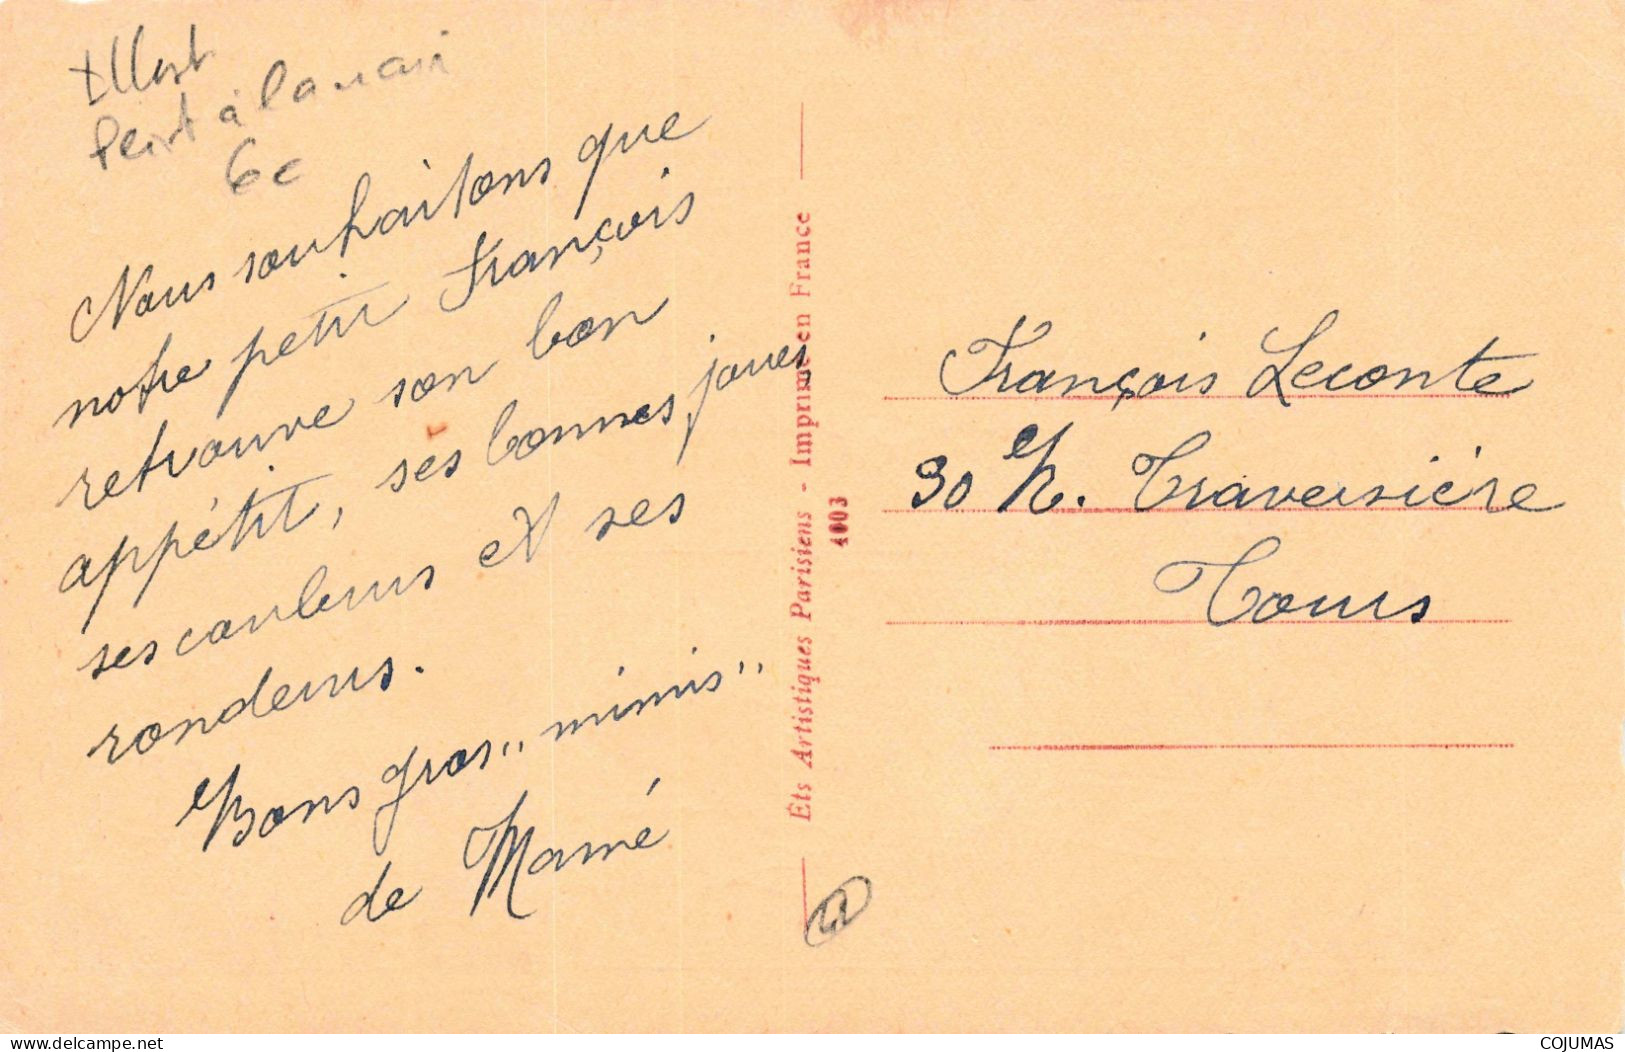 Illust
Peint à la main
6e
Nous souhaitons que
notre petit François
retrouve son bon
appétit, ses bonnes joues
ses couleurs et ses
rondeurs.
Bons gros " mimis "
de Mamé
Éts Artistiques Parisiens - Imprimé en France
4003
François Leconte
30 R. Traversière
Tours
delcampe.net
COJUMAS